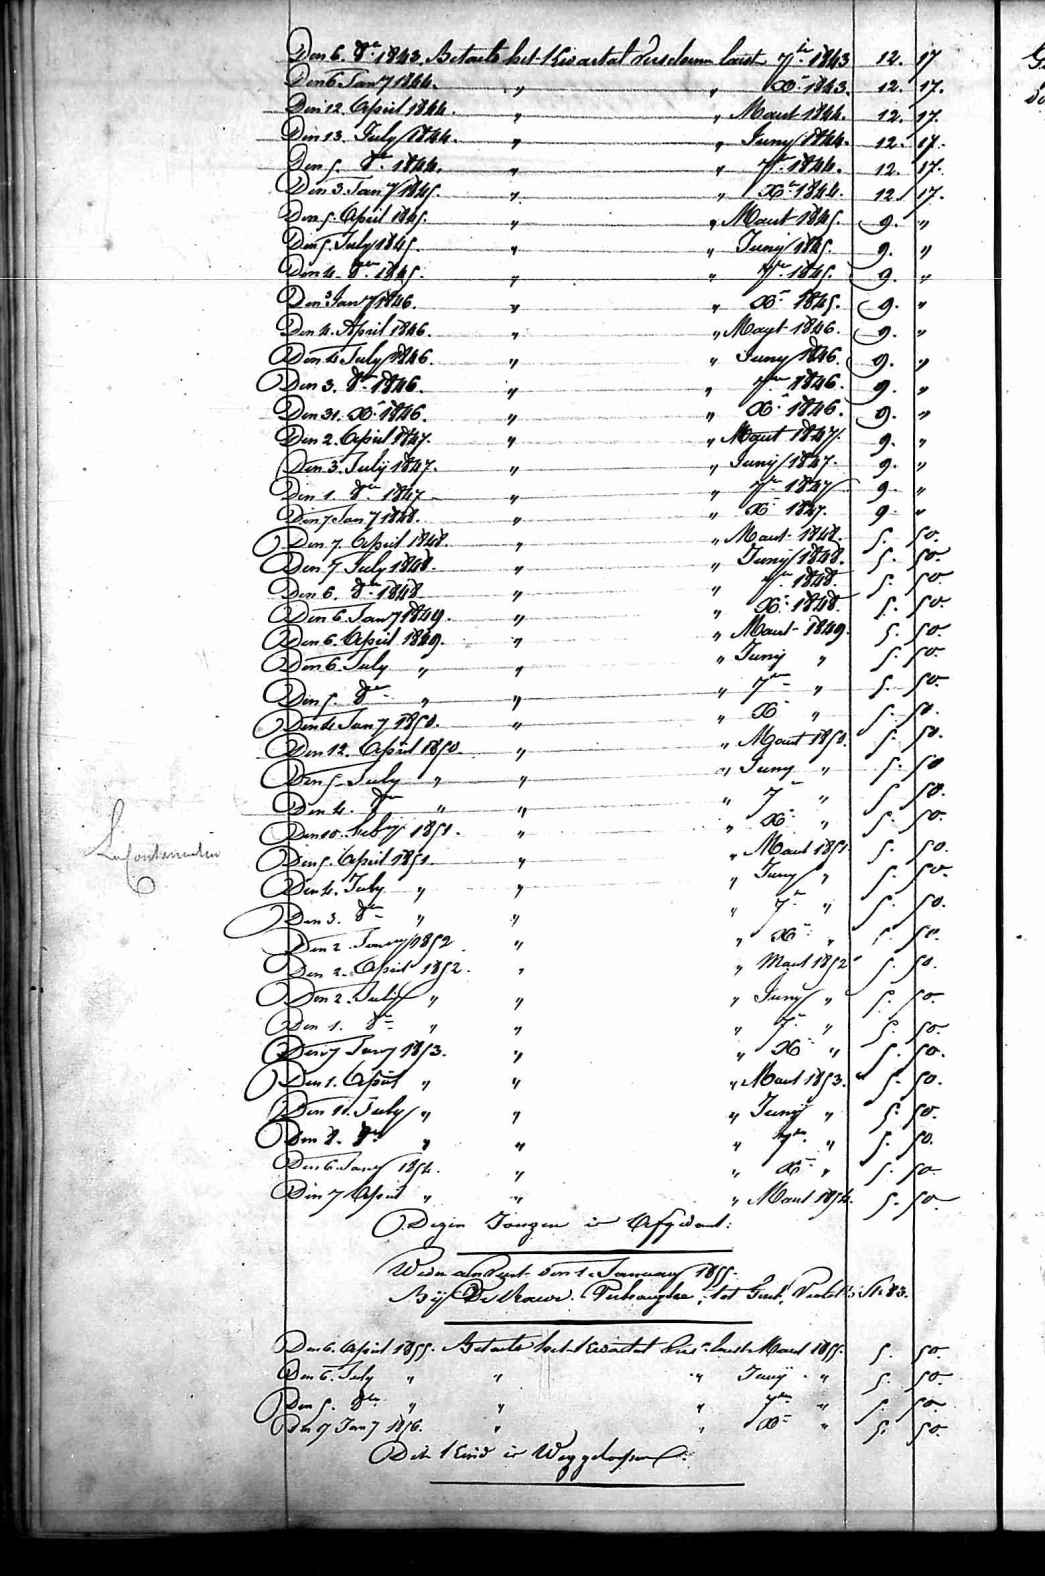 Den 6. 8re 1843. Betaale het Kwartal Verscheenen laast 7br 1843 12. 17
Den 6 Jany 1844. " " Xr 1843. 12. 17.
Den 12 April 1844. " " Maart 1844. 12. 17.
Den 13. July 1844. " " Juny 1844. 12. 17.
Den 5. 8re 1844. " " 7br 1844. 12. 17.
Den 3. Jany 1845. " " Xr 1844. 12 17.
Den 5. April 1845. " " Maart 1845. 9. "
Den 5. July 1845. " " Juny 1845. 9. "
Den 4. 8re 1845. " " 7br 1845. 9. "
Den 3 Jany 1846. " " Xr 1845. 9. "
Den 4. April 1846. " " Maart 1846. 9. "
Den 4 July 1846. " " Juny 1846. 9. "
Den 3. 8re 1846. " " 7br 1846. 9. "
Den 31. Xr 1846. " " Xr 1846. 9. "
Den 2. April 1847. " " Maart 1847. 9. "
Den 3. July 1847. " " Juny 1847. 9. "
Den 1. 8re 1847 " " 7br 1847 9. "
Den 7 Jany 1848. " " Xr 1847. 9. "
Den 7. April 1848. " " Maart 1848. 5. 50.
Den 7 July 1848. " " Juny 1848. 5. 50.
Den 6. 8re 1848 " " 7br 1848. 5. 50.
Den 6. Jany 1849. " " Xr 1848. 5. 50.
Den 6. April 1849. " " Maart 1849. 5. 50.
Den 6. July " " " Juny " 5. 50.
Den 5. 8re " " " 7br " 5. 50.
Den 4 Jany 1850. " " Xr " 5. 50.
Den 12. April 1850. " " Maart 1850. 5. 50.
Den 5 July " " " Juny " 5. 50
Den 4. 8re " " " 7br " 5 50.
Den 10. Feby 1851. " " Xr " 5. 50.
Den 5. April 1851. " " Maart 1851 5. 50.
Den 4. July " " " Juny " 5. 50.
Den 3. 8re " " " 7br " 5. 50.
Den 2 January 1852 " " Xr " 5. 50.
Den 2. April 1852. " " Maart 1852 5. 50.
Den 2. July " " " Juny " 5. 50.
Den 1. 8re " " " 7br " 5. 50.
Den 7 Jany 1853. " " Xr " 5. 50.
Den 1. April " " " Maart 1853. 5. 50.
Den 11. July " " " Juny " 5. 50.
Den 8. 8re " " " 7br " 5. 50.
Den 6 Jany 1854. " " Xr " 5. 50.
Den 7 April " " " Maart 1854. 5. 50
Dezen Jongen is
den 1. January 1855.
Bij De Vrouw tot Gent, No 83.
Den 6. April 1855. Betaale het Kwartal Vers. laast Maart 1855. 5. 50.
Den 6. July " " " Juny " 5. 50.
Den 5. 8re " " " 7br " 5. 50.
Den 17 Jany 1856. " " Xr " 5. 50.
Dit Kind is Weggeloopen.